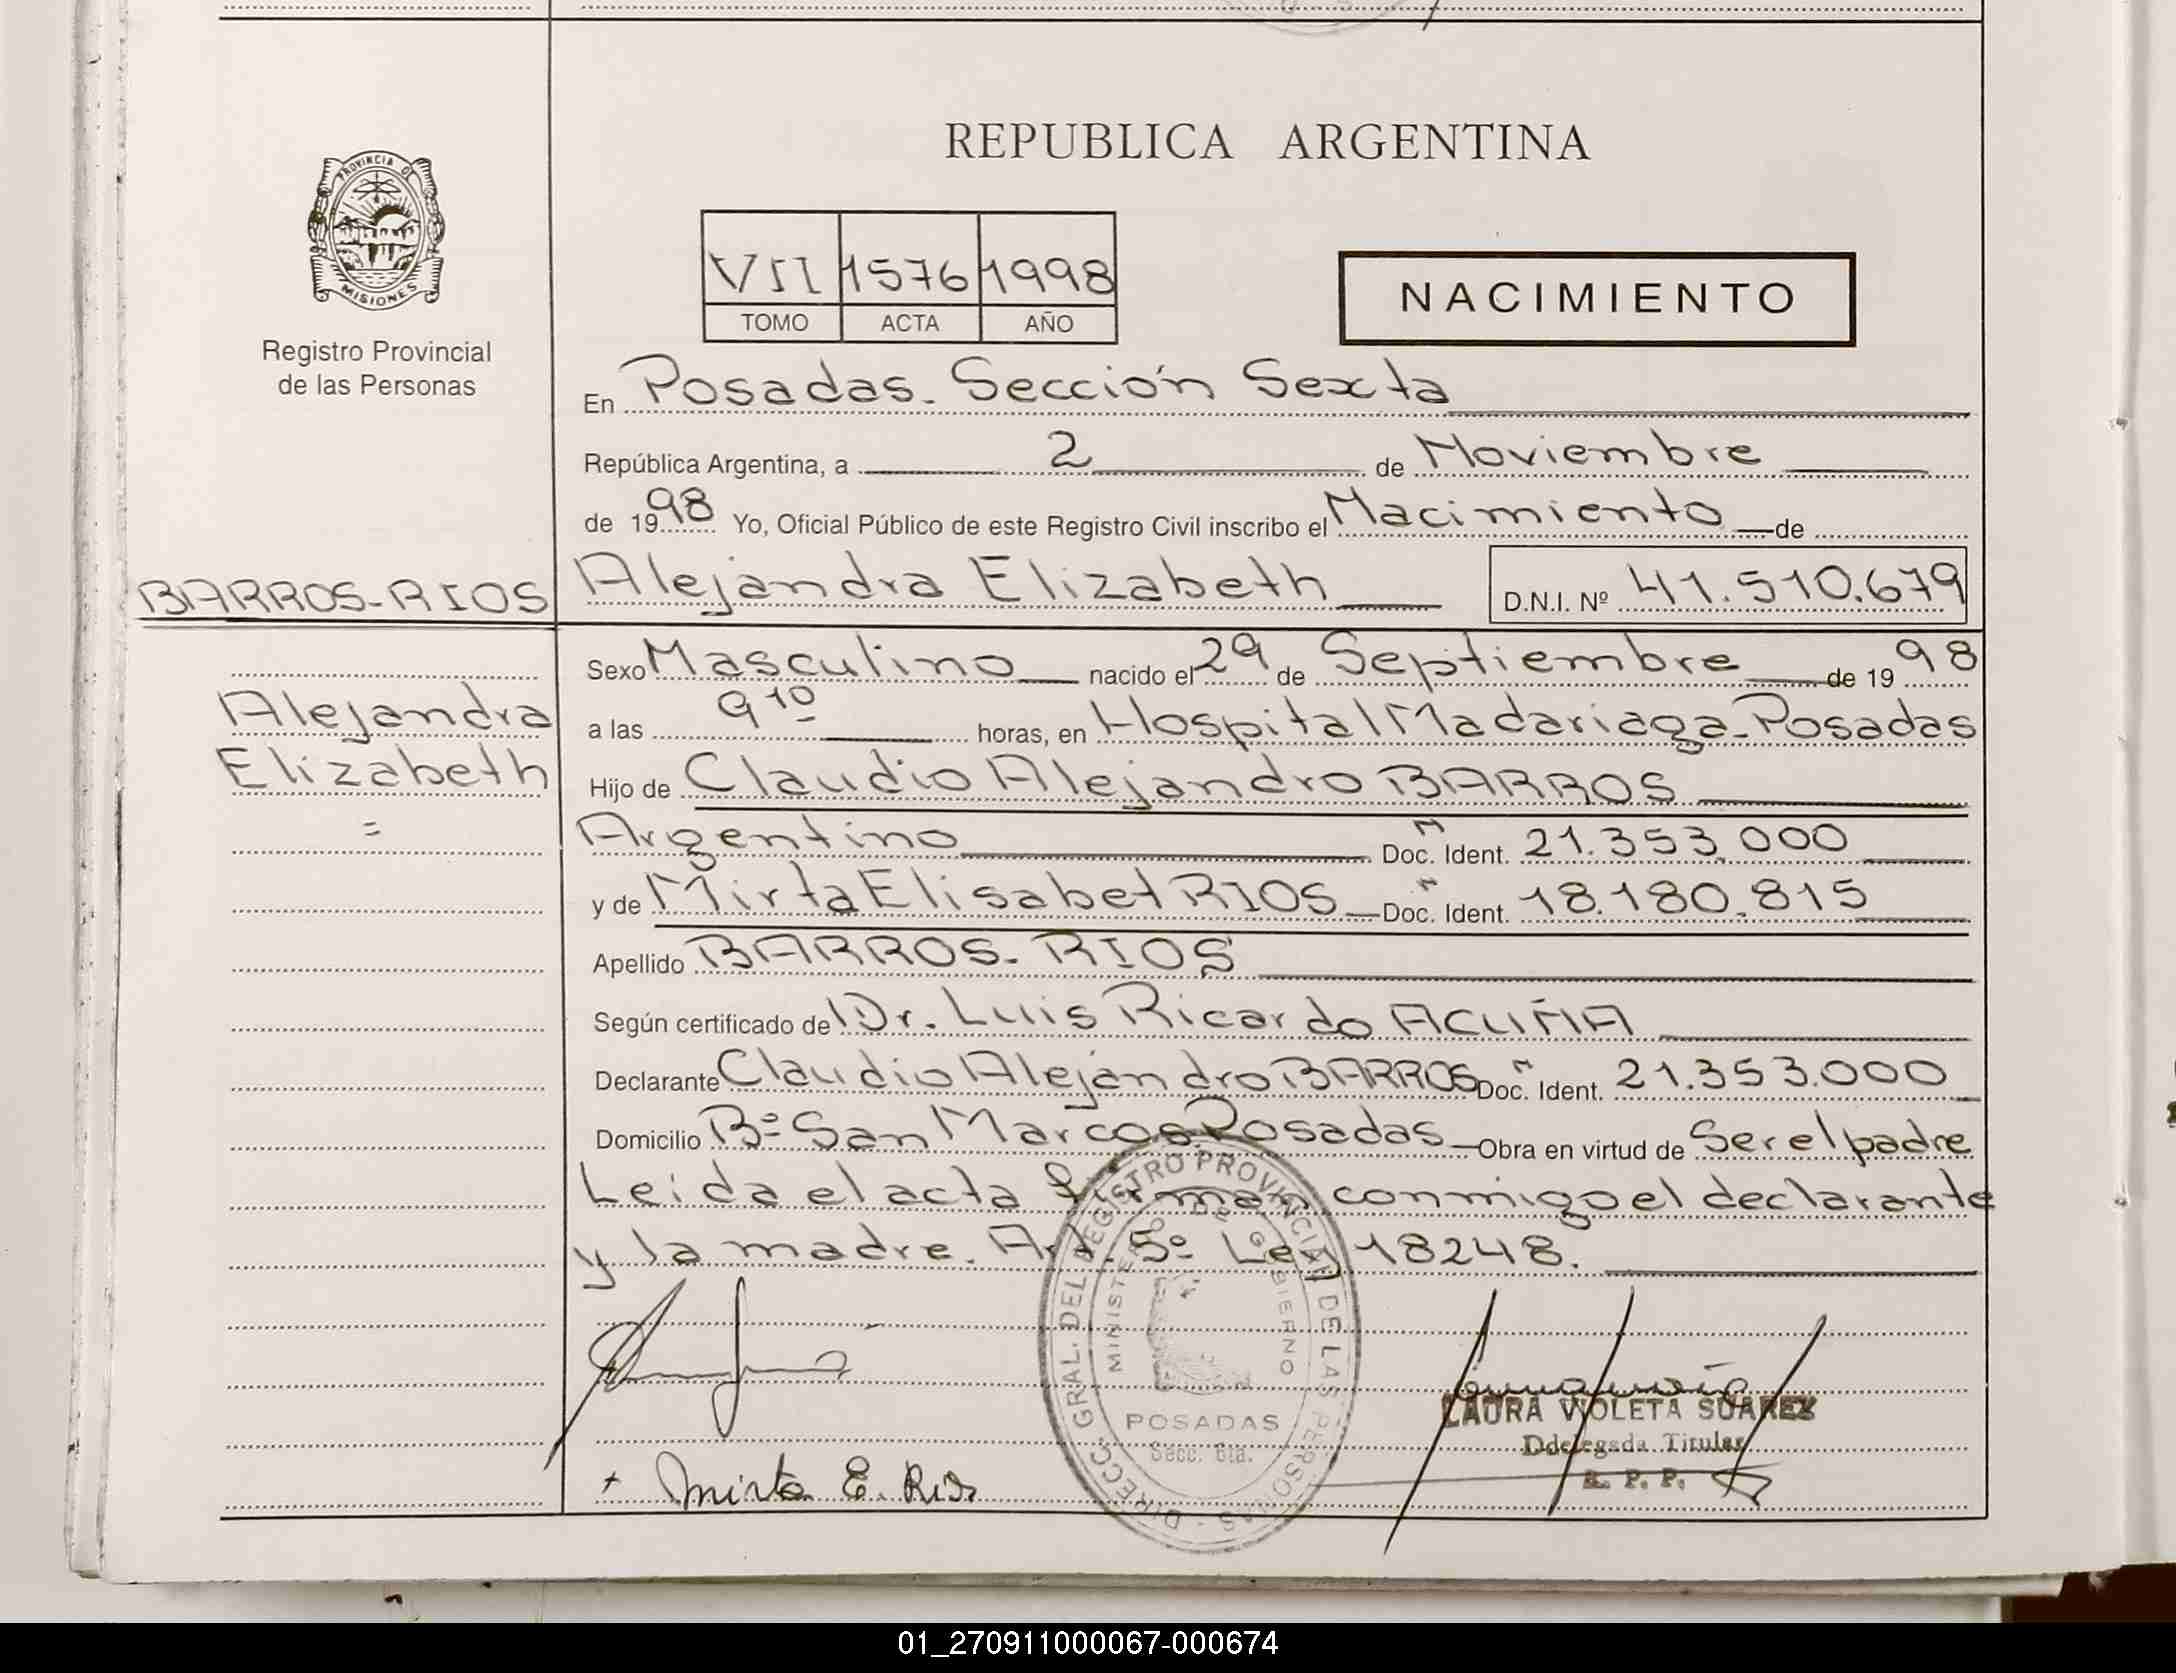 REPUBLICA ARGENTINA
PROVINCIA DE
MISIONES
Registro Provincial
de las Personas
VII 1576 1998
TOMO ACTA AÑO
NACIMIENTO
En Posadas. Sección Sexta
República Argentina, a 2 de Noviembre
de 1998 Yo, Oficial Público de este Registro Civil inscribo el Nacimiento de
BARROS-RIOS
Alejandra Elizabeth D.N.I. Nº 41.510.679
Alejandra
Elizabeth
=
Sexo Masculino nacido el 29 de Septiembre de 1998
a las 9 10 horas, en Hospital Madariaga-Posadas
Hijo de Claudio Alejandro BARROS
Argentino Doc. Ident. 21.353.000
y de Mirta Elisabet RIOS Doc. Ident. 18.180.815
Apellido BARROS-RIOS
Según certificado de Dr. Luis Ricardo ACUÑA
Declarante Claudio Alejandro BARROS Doc. Ident. 21.353.000
Domicilio Bº San Marcos Posadas Obra en virtud de Ser el padre
Leida el acta firman conmigo el declarante
y la madre. Art. 5º Ley 18248.
DIRECC. GRAL. DEL REGISTRO PROVINCIAL DE LAS PERSONAS
MINISTERIO DE GOBIERNO
POSADAS
Secc. 6ta.
LAURA VIOLETA SUAREZ
Ddelegada Titular
R. P. P.
Mirta E. Rios
01_270911000067-000674